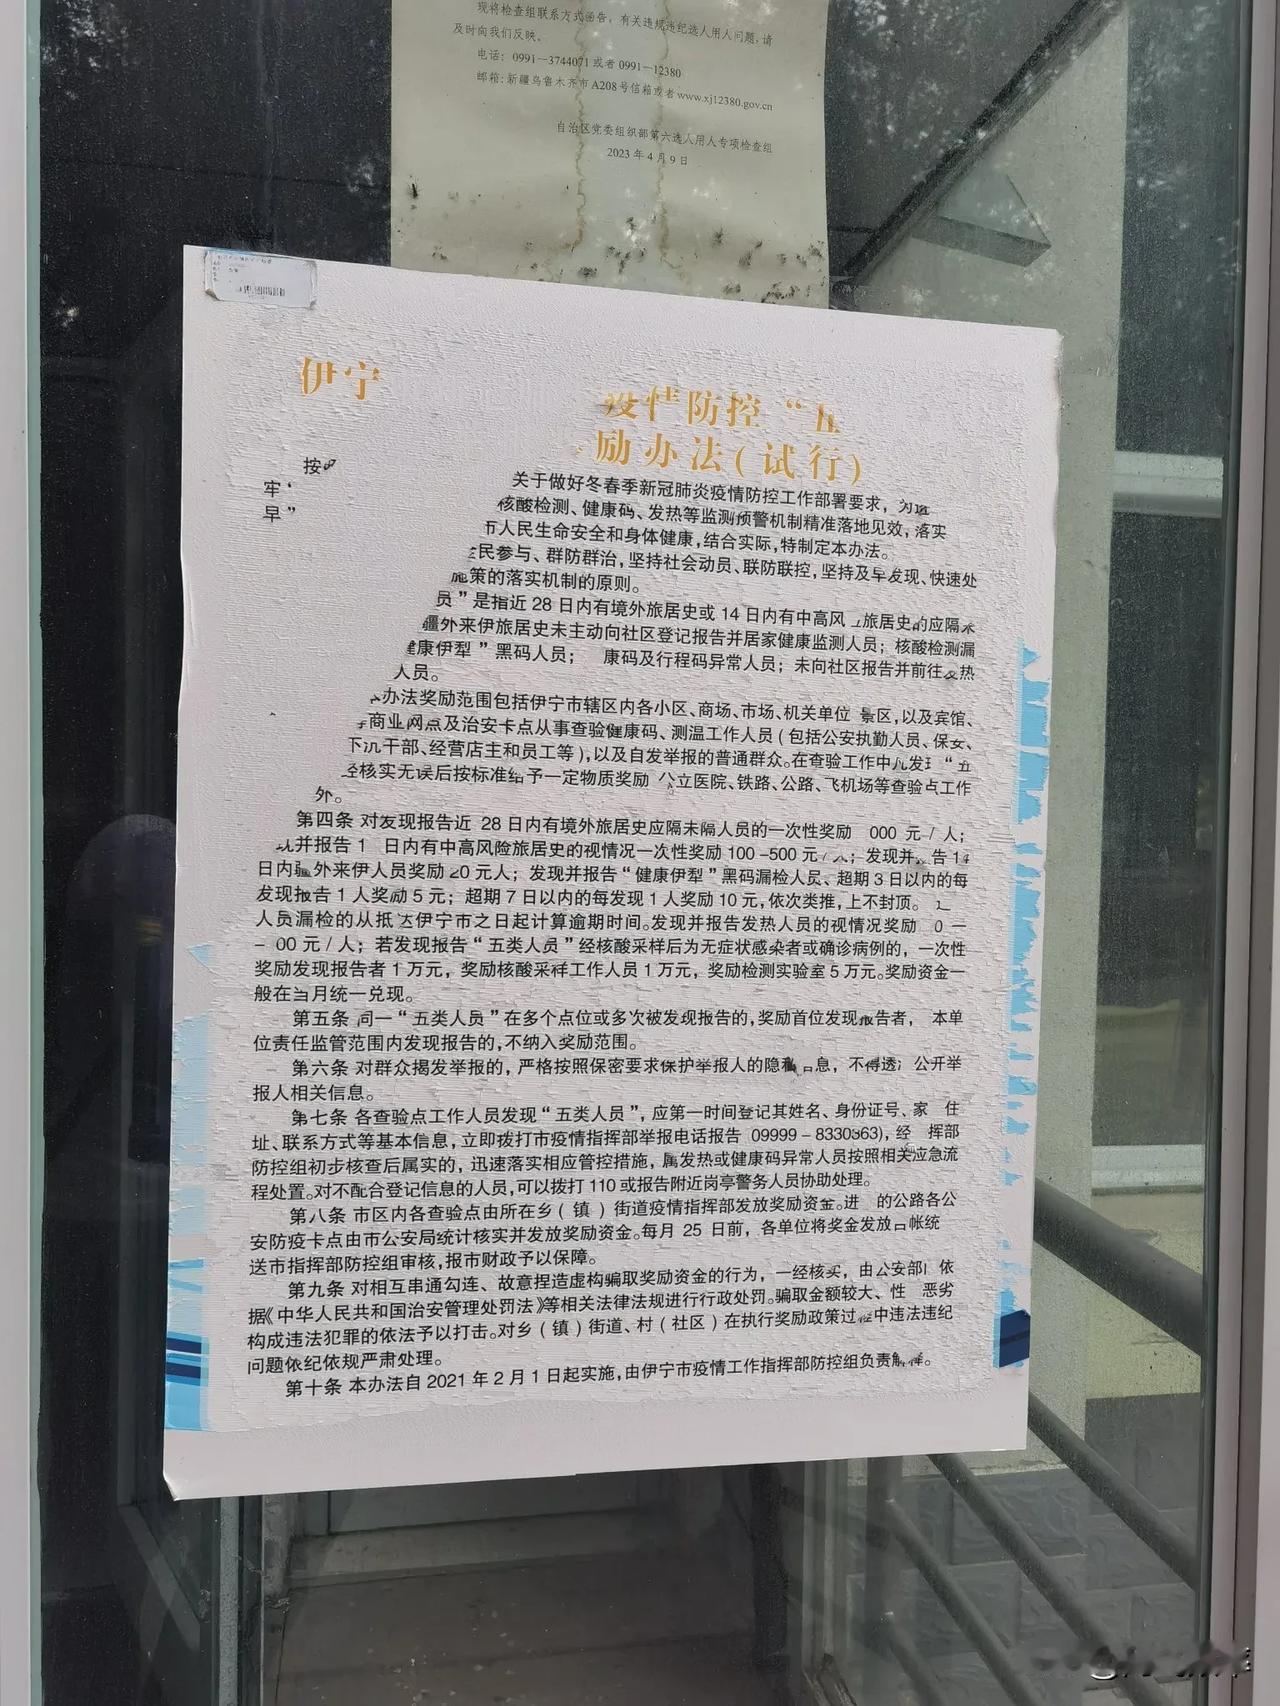 现将检查组联系方式函告，有关违规违纪选人用人问题，请
及时向我们反映。
电话：0991—3744071或者0991—12380
邮箱：新疆乌鲁木齐市A208号信箱或者www.xj12380.gov.cn
自治区党委组织部第六选人用人专项检查组
2023年4月9日
伊宁 疫情防控“五
励办法（试行）
按
关于做好冬春季新冠肺炎疫情防控工作部署要求，为
牢 核酸检测、健康码、发热等监测预警机制精准落地见效，落实
早” 市人民生命安全和身体健康，结合实际，特制定本办法。
民参与、群防群治，坚持社会动员、联防联控，坚持及早发现、快速处
施策的落实机制的原则。
员”是指近28日内有境外旅居史或14日内有中高风 旅居史的应隔未
疆外来伊旅居史未主动向社区登记报告并居家健康监测人员；核酸检测漏
健康伊犁”黑码人员； 康码及行程码异常人员；未向社区报告并前往 热
人员。
办法奖励范围包括伊宁市辖区内各小区、商场、市场、机关单位 景区，以及宾馆、
商业网点及治安卡点从事查验健康码、测温工作人员（包括公安执勤人员、保安、
下沉干部、经营店主和员工等），以及自发举报的普通群众。在查验工作中 发现“五
经核实无误后按标准给予一定物质奖励 公立医院、铁路、公路、飞机场等查验点工作
外。
第四条 对发现报告近 28日内有境外旅居史应隔未隔人员的一次性奖励 000元/人；
现并报告1 日内有中高风险旅居史的视情况一次性奖励100-500元/人；发现并 告14
日内疆外来伊人员奖励20元人；发现并报告“健康伊犁”黑码漏检人员、超期3日以内的每
发现报告1人奖励5元；超期7日以内的每发现1人奖励10元，依次类推，上不封顶。
人员漏检的从抵达伊宁市之日起计算逾期时间。发现并报告发热人员的视情况奖励 0—
00元/人；若发现报告“五类人员”经核酸采样后为无症状感染者或确诊病例的，一次性
奖励发现报告者1万元，奖励核酸采样工作人员1万元，奖励检测实验室5万元。奖励资金一
般在当月统一兑现。
第五条 同一“五类人员”在多个点位或多次被发现报告的，奖励首位发现报告者， 本单
位责任监管范围内发现报告的，不纳入奖励范围。
第六条 对群众揭发举报的，严格按照保密要求保护举报人的隐私 息，不得透 公开举
报人相关信息。
第七条 各查验点工作人员发现“五类人员”，应第一时间登记其姓名、身份证号、家 住
址、联系方式等基本信息，立即拨打市疫情指挥部举报电话报告 09999-8330363)，经 挥部
防控组初步核查后属实的，迅速落实相应管控措施，属发热或健康码异常人员按照相关应急流
程处置。对不配合登记信息的人员，可以拨打110或报告附近岗亭警务人员协助处理。
第八条 市区内各查验点由所在乡（镇）街道疫情指挥部发放奖励资金。进 的公路各公
安防疫卡点由市公安局统计核实并发放奖励资金。每月25日前，各单位将奖金发放台帐统
送市指挥部防控组审核，报市财政予以保障。
第九条 对相互串通勾连、故意捏造虚构骗取奖励资金的行为，一经核实，由公安部 依
据《中华人民共和国治安管理处罚法》等相关法律法规进行行政处罚。骗取金额较大、性 恶劣
构成违法犯罪的依法予以打击。对乡（镇）街道、村（社区）在执行奖励政策过程中违法违纪
问题依纪依规严肃处理。
第十条 本办法自2021年2月1日起实施，由伊宁市疫情工作指挥部防控组负责解释。